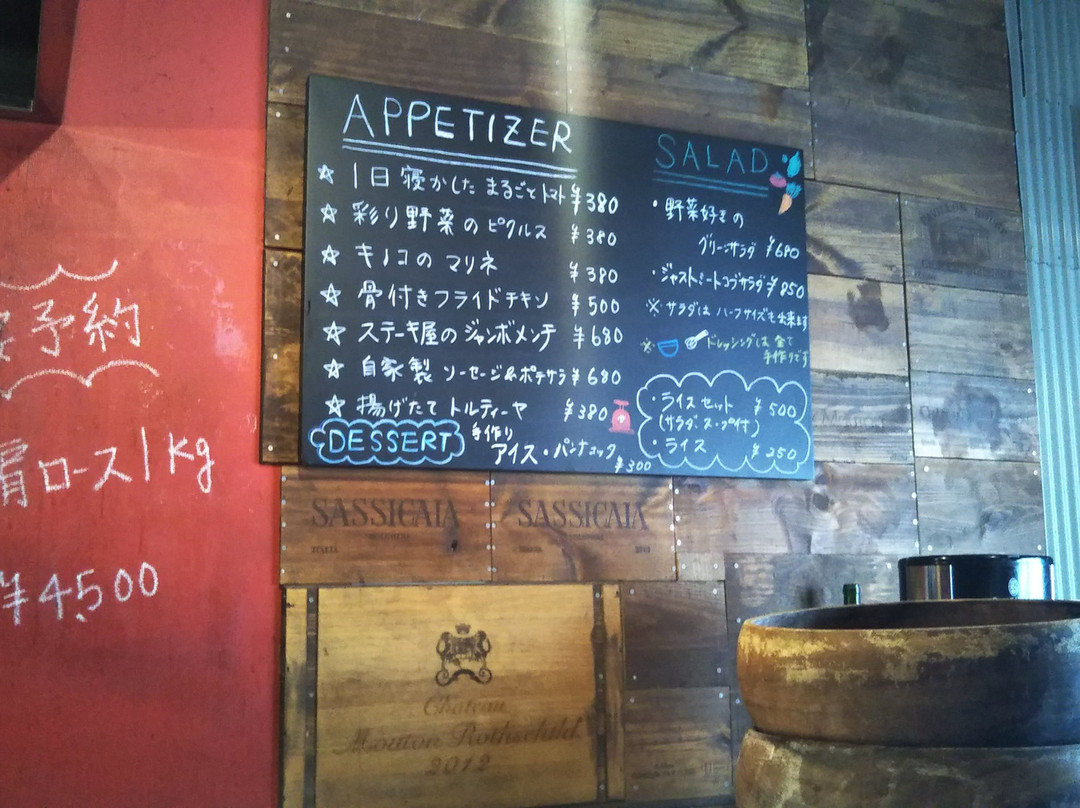 予約
肩ロース1kg
¥4,500
APPETIZER
☆ 1日寝かした まるごとトマト ¥380
☆ 彩り野菜のピクルス ¥380
☆ キノコのマリネ ¥380
☆ 骨付きフライドチキン ¥500
☆ ステーキ屋のジャンボメンチ ¥680
☆ 自家製 ソーセージ&ポテサラ ¥680
☆ 揚げたて トルティーヤ ¥380
DESSERT 手作り アイス・パンナコッタ ¥300
SALAD
・野菜好きの
グリーンサラダ ¥680
・ジャストミートコブサラダ ¥850
※サラダは ハーフサイズも出来ます
※ ドレッシングは全て
手作りです
・ライスセット ¥500
(サラダ、スープ付)
・ライス ¥250
SASSICAIA
SASSICAIA
Chateau
Mouton Rothschild
2012